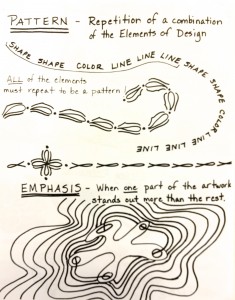 PATTERN - Repetition of a combination
of the Elements of Design
SHAPE SHAPE COLOR LINE LINE LINE SHAPE SHAPE COLOR LINE LINE LINE
ALL of the elements
must repeat to be a pattern.
EMPHASIS - When one part of the artwork
stands out more than the rest.